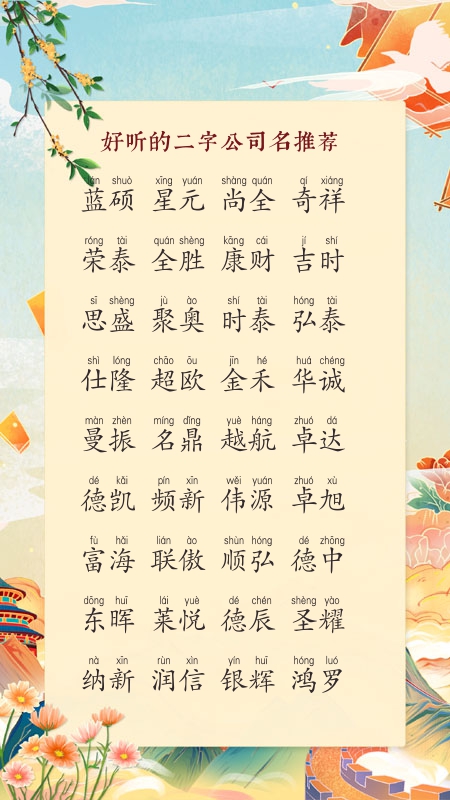 好听的二字公司名推荐
lán shuò xīng yuán shàng quán qí xiáng
蓝硕 星元 尚全 奇祥
róng tài quán shèng kāng cái jí shí
荣泰 全胜 康财 吉时
sī shèng jù ào shí tài hóng tài
思盛 聚奥 时泰 弘泰
shì lóng chāo ōu jīn hé huá chéng
仕隆 超欧 金禾 华诚
màn zhèn míng dǐng yuè háng zhuó dá
曼振 名鼎 越航 卓达
dé kǎi pín xīn wěi yuán zhuó xù
德凯 频新 伟源 卓旭
fù hǎi lián ào shùn hóng dé zhōng
富海 联傲 顺弘 德中
dōng huī lái yuè dé chén shèng yào
东晖 莱悦 德辰 圣耀
nà xīn rùn xìn yín huī hóng luó
纳新 润信 银辉 鸿罗